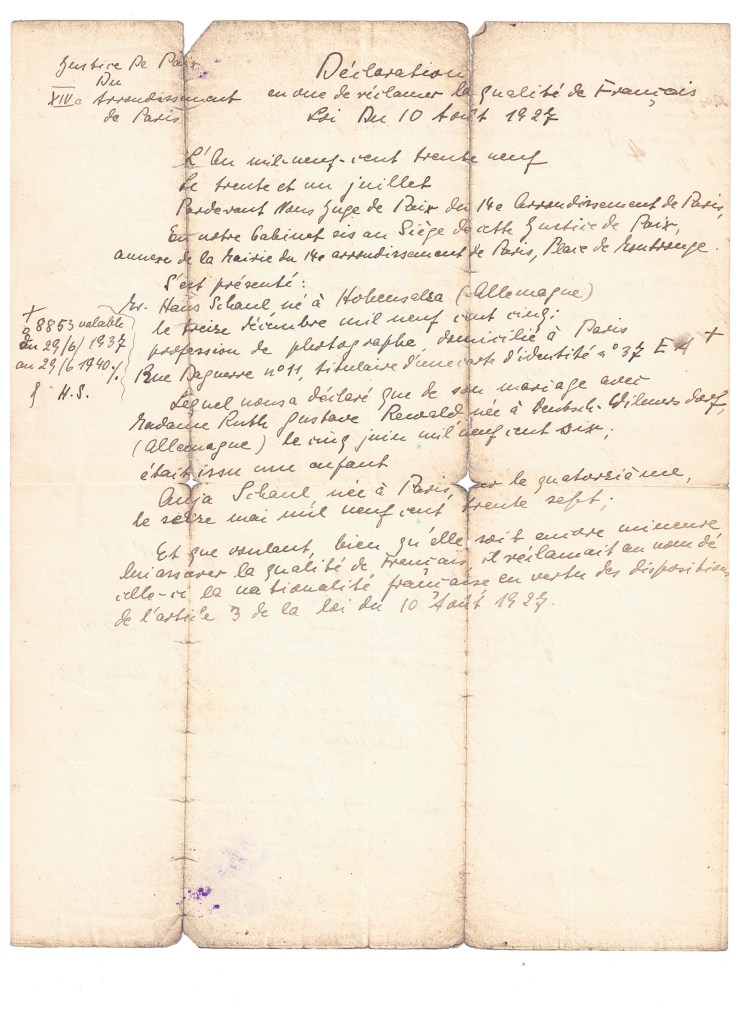 Justice De Paix
Du
XIVe Arrondissement
de Paris
Déclaration
en vue de réclamer la qualité de Français
Loi Du 10 Août 1927
L'An mil-neuf-cent trente neuf
le trente et un juillet
Pardevant Nous Juge de Paix du 14e Arrondissement de Paris,
En notre Cabinet sis au Siège de cette Justice de Paix,
annexe de la Mairie du 14e arrondissement de Paris, Place de Montrouge.
S'est présenté:
Mr. Hans Schaul né à Hohensalza (Allemagne)
le treize décembre mil neuf cent cinq;
profession de photographe, domicilié à Paris
Rue Daguerre n° 11, titulaire d'une carte d'identité n° 37 E A +
+
8853 valable
du 29/6/1937
au 29/6 1940./.
H.S.
Lequel nous a déclaré que de son mariage avec
Madame Ruth Gustave Rewald née à Deutsch-Wilmersdorf,
(Allemagne) le cinq juin mil neuf cent Dix;
était issu une enfant
Anja Schaul, née à Paris, sur le quatorzième,
le seize mai mil neuf cent trente sept;
Et que voulant, bien qu'elle soit encore mineure
lui assurer la qualité de Français, il réclamait au nom de
celle-ci la nationalité française en vertu des dispositions
de l'article 3 de la loi du 10 Août 1927.